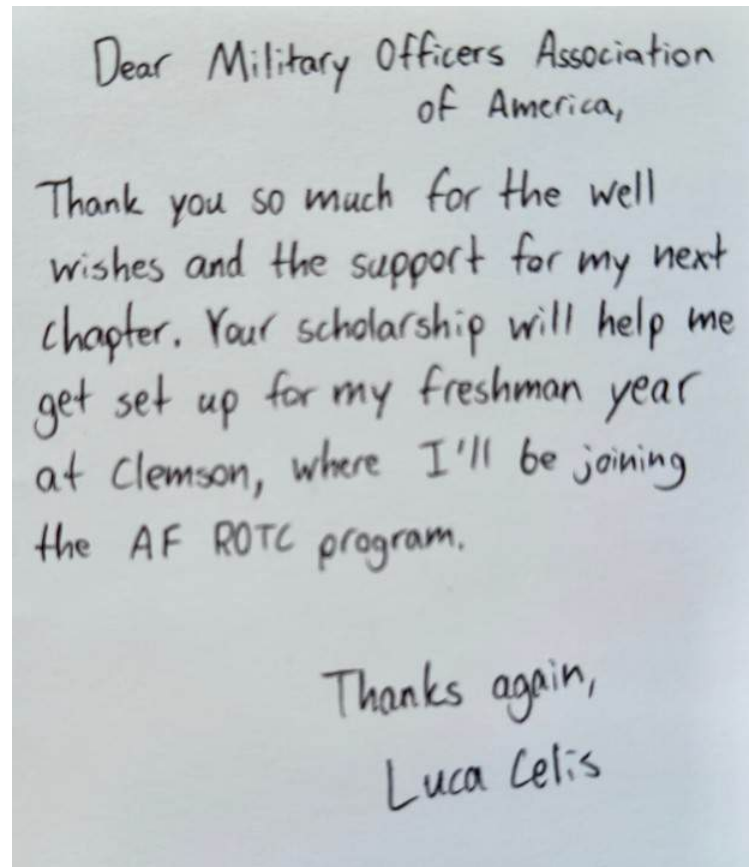 Dear Military Officers Association
of America,
Thank you so much for the well
wishes and the support for my next
chapter. Your scholarship will help me
get set up for my freshman year
at Clemson, where I'll be joining
the AF ROTC program.
Thanks again,
Luca Celis